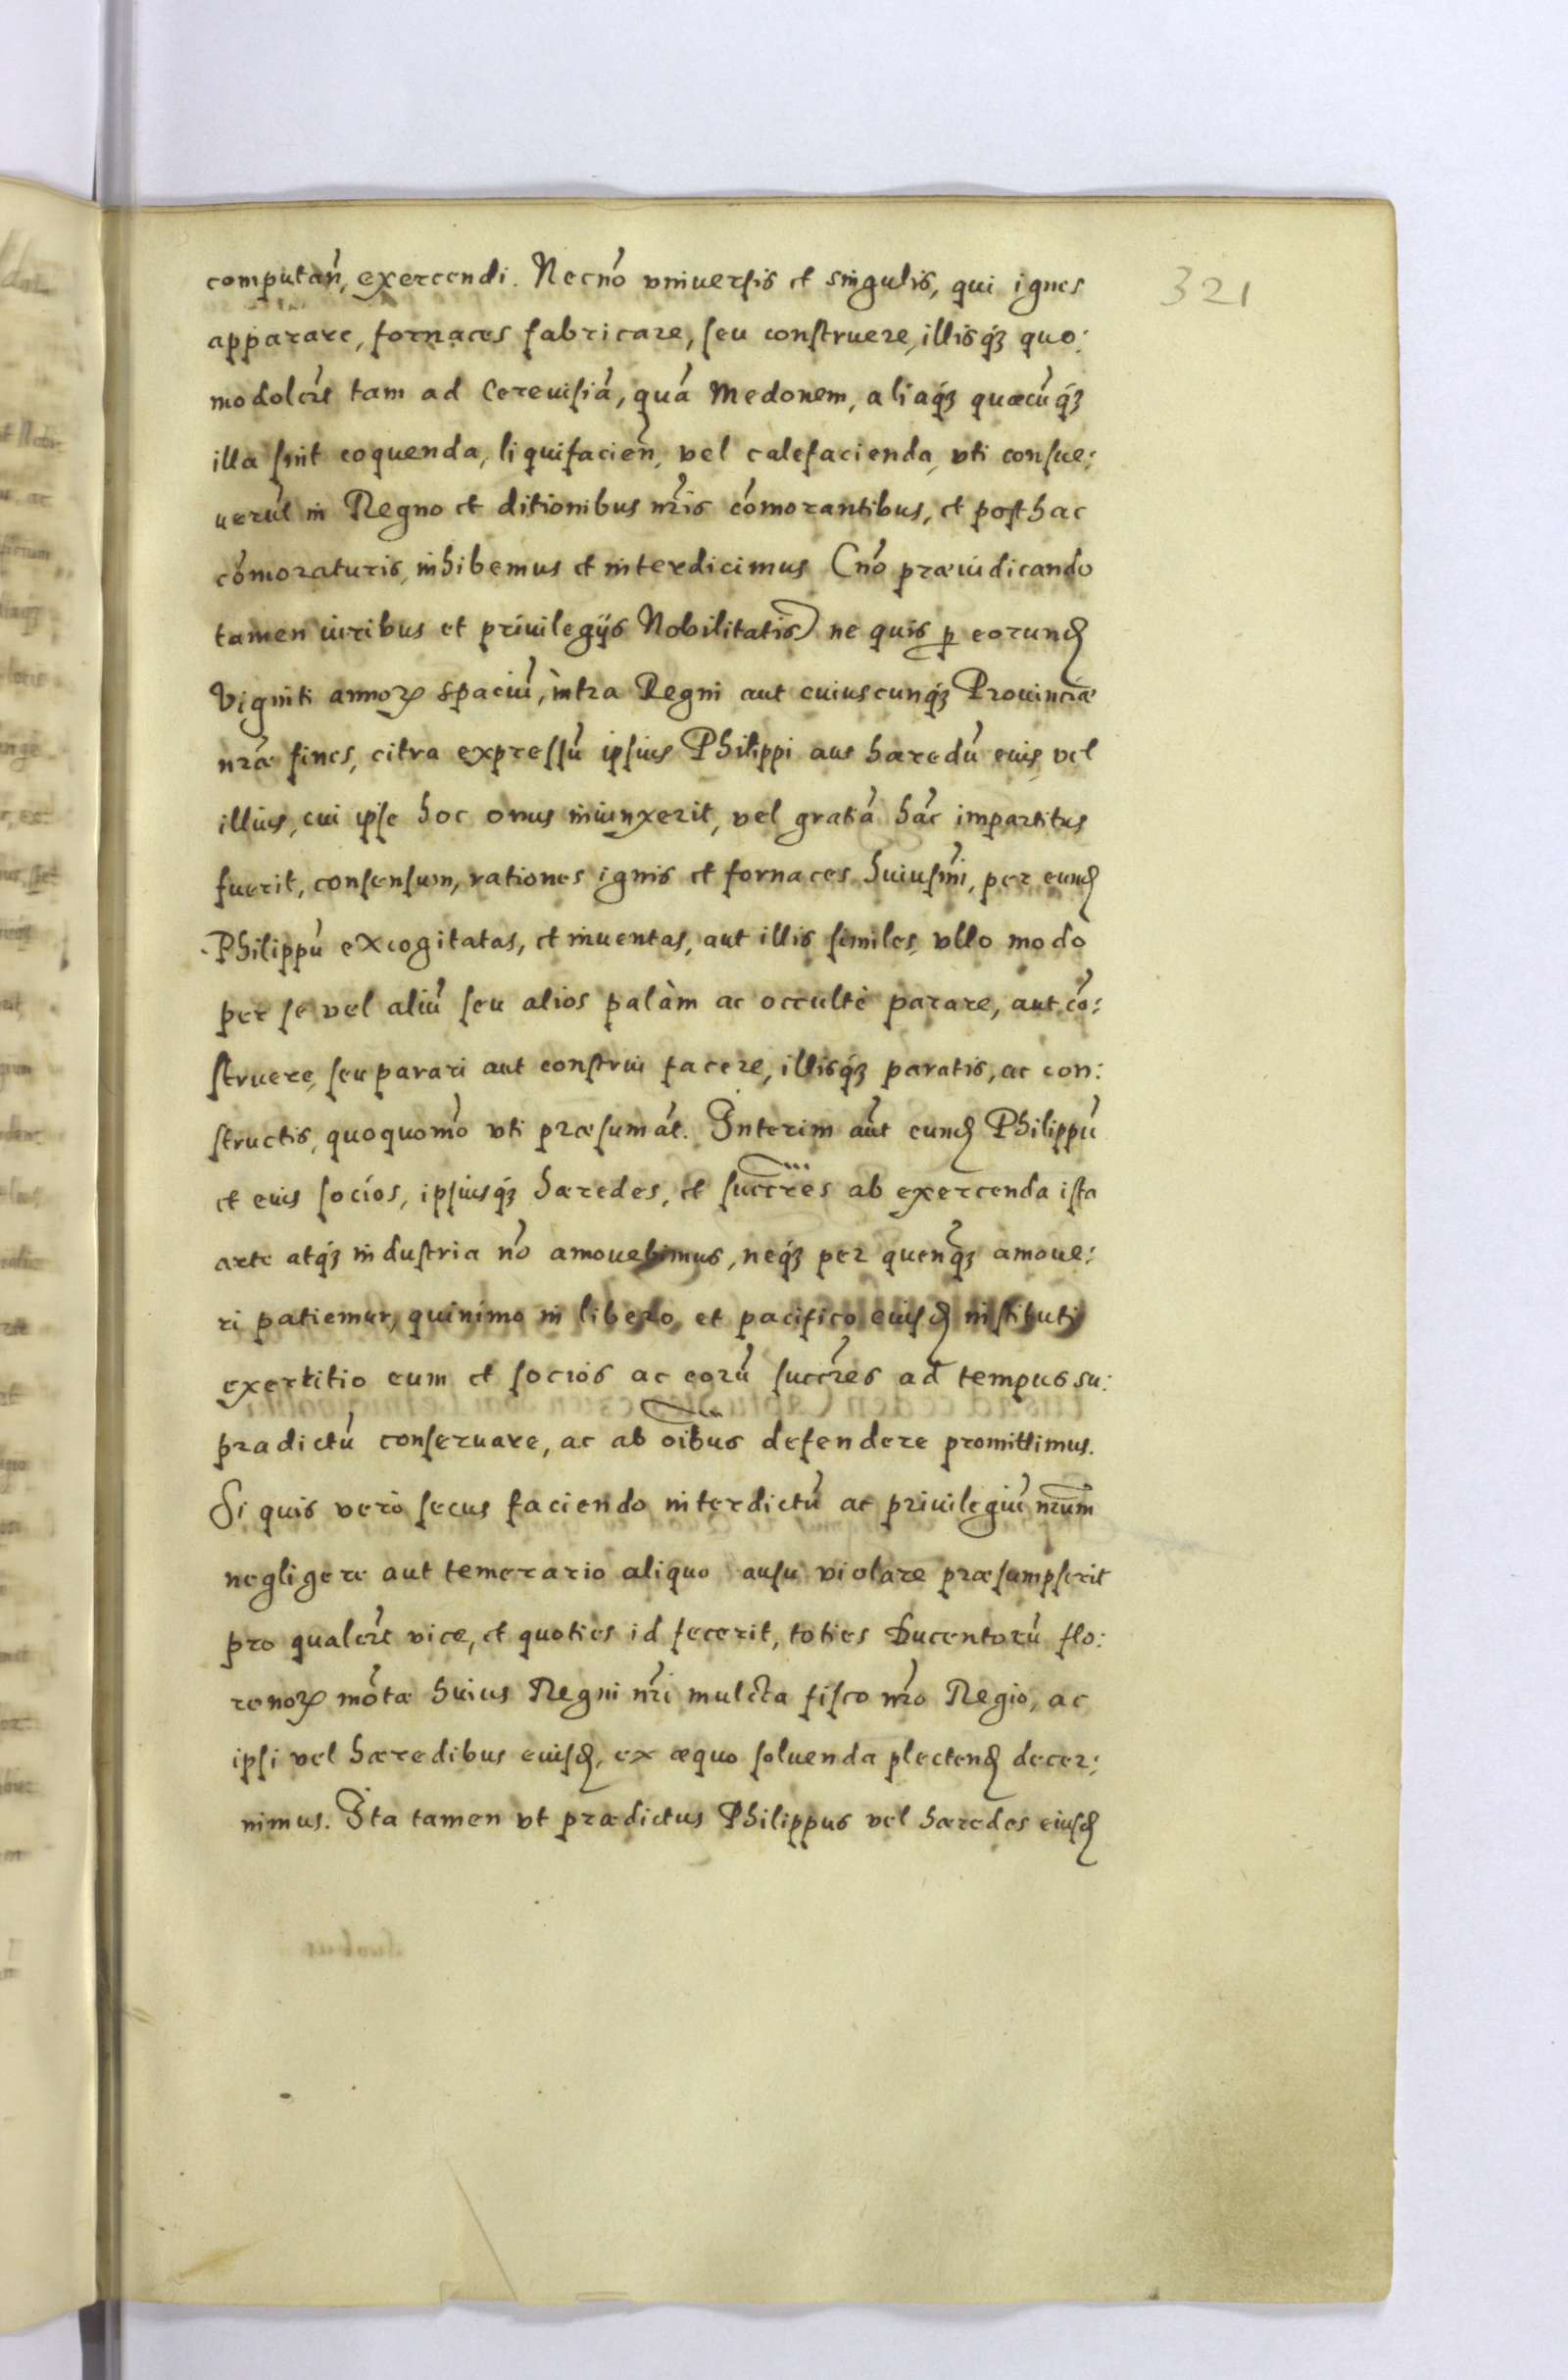 321
computan̄, exercendi. Necnō vniuersis et singulis, qui ignes
apparare, fornaces fabricare, seu construere, illisq́ꝫ quo:
modolcr̄t tam ad Cereuisiā, quā Medonem, aliaq́ꝫ quæcūq́ꝫ
illa sint coquenda, liquifacien̄, vel calefacienda, vti consue:
uerūt in Regno et ditionibus nr̄is cōmorantibus, et posthac
cōmoraturis, inhibemus et interdicimus (nō præiudicando
tamen iuribus et priuilegijs Nobilitatis) ne quis ꝑ eorundꝫ
Viginti annoꝝ spaciū, intra Regni aut cuiuscunq́ꝫ Prouinciæ
nr̄æ fines, citra expressū ipsius Philippi aut hæredū eius, vel
illius, cui ipse hoc onus iniunxerit, vel gratiā hāc impartitus
fuerit, consensum, rationes ignis et fornaces huiusmi̅, per eundꝫ
Philippū excogitatas, et inuentas, aut illis similes, vllo modo
per se vel aliū seu alios palàm ac occultè parare, aut cō:
struere, seu parari aut construi facere, illisq́ꝫ paratis, ac con:
structis, quoquomō vti præsumāt. Interim aūt eundꝫ Philippū
et eius socios, ipsiusq́ꝫ hæredes, et succr̄es ab exercenda ista
arte atq́ꝫ industria nō amouebimus, neq́ꝫ per quenq̄ꝫ amoue:
ri patiemur, quinimo in libero et pacifico eiusdꝫ instituti
exertitio eum et socios ac eorū succr̄es ad tempus su:
pradictū conseruare, ac ab oībus defendere promittimus.
Si quis verò secus faciendo interdictū ac priuilegiū nr̄um
negligere aut temerario aliquo ausu violare præsumpserit
pro qualcr̄t vice, et quoties id fecerit, toties Ducentorū flo:
renoꝝ mōtæ huius Regni nr̄i mulcta fisco nr̄o Regio, ac
ipsi vel hæredibus eiusdꝫ, ex æquo soluenda plectendꝫ decer:
nimus. Ita tamen vt prædictus Philippus vel hæredes eiusdꝫ